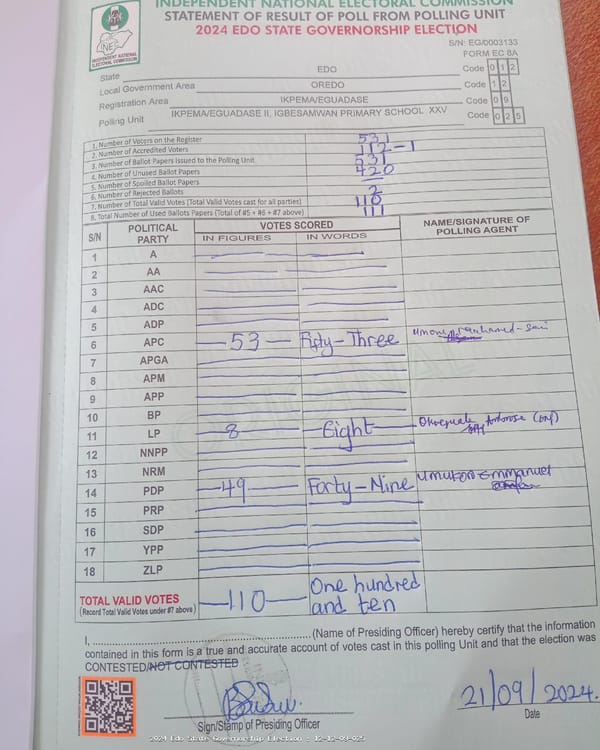 INDEPENDENT NATIONAL ELECTORAL COMMISSION
STATEMENT OF RESULT OF POLL FROM POLLING UNIT
2024 EDO STATE GOVERNORSHIP ELECTION
INDEPENDENT NATIONAL
ELECTORAL COMMISSION
S/N: EG/0003133
FORM EC 8A
State EDO Code 0 1 2
Local Government Area OREDO Code 1 2
Registration Area IKPEMA/EGUADASE Code 0 9
Polling Unit IKPEMA/EGUADASE II, IGBESAMVAN PRIMARY SCHOOL XXV Code 0 2 5
1. Number of Voters on the Register 531
2. Number of Accredited Voters 112-1
3. Number of Ballot Papers Issued to the Polling Unit 531
4. Number of Unused Ballot Papers 420
5. Number of Spoiled Ballot Papers —
6. Number of Rejected Ballots 2
7. Number of Total Valid Votes (Total Valid Votes cast for all parties) 110
8. Total Number of Used Ballots Papers (Total of #5 + #6 + #7 above) 111
S/N POLITICAL PARTY VOTES SCORED NAME/SIGNATURE OF POLLING AGENT
IN FIGURES IN WORDS
1 A
2 AA
3 AAC
4 ADC
5 ADP
6 APC 53 Fifty-Three
7 APGA
8 APM
9 APP
10 BP
11 LP 8 Eight Ambrose
12 NNPP
13 NRM
14 PDP 49 Forty-Nine Emmanuel
15 PRP
16 SDP
17 YPP
18 ZLP
TOTAL VALID VOTES 110 One hundred and ten
(Record Total Valid Votes under #7 above)
I, ..........(Name of Presiding Officer) hereby certify that the information
contained in this form is a true and accurate account of votes cast in this polling Unit and that the election was
CONTESTED/NOT CONTESTED
21/09/2024.
Sign/Stamp of Presiding Officer Date
2024 Edo State Governorship Election : 12-12-09-025